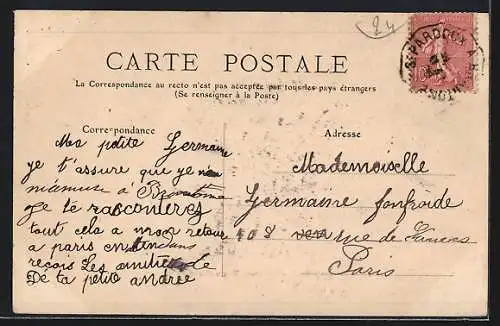 24
CARTE POSTALE
La Correspondance au recto n'est pas acceptée par tous les pays étrangers
(Se renseigner à la Poste)
Correspondance
Adresse
Ma petite Germaine
je t'assure que je
m'amuse a
je te raconteres
tout cela a mon retour
a paris en attendans
reçois Les amitié de
De ta petite andrée
Mademoiselle
Germaine fonfroide
108 rue de
Paris
St PARDOUX